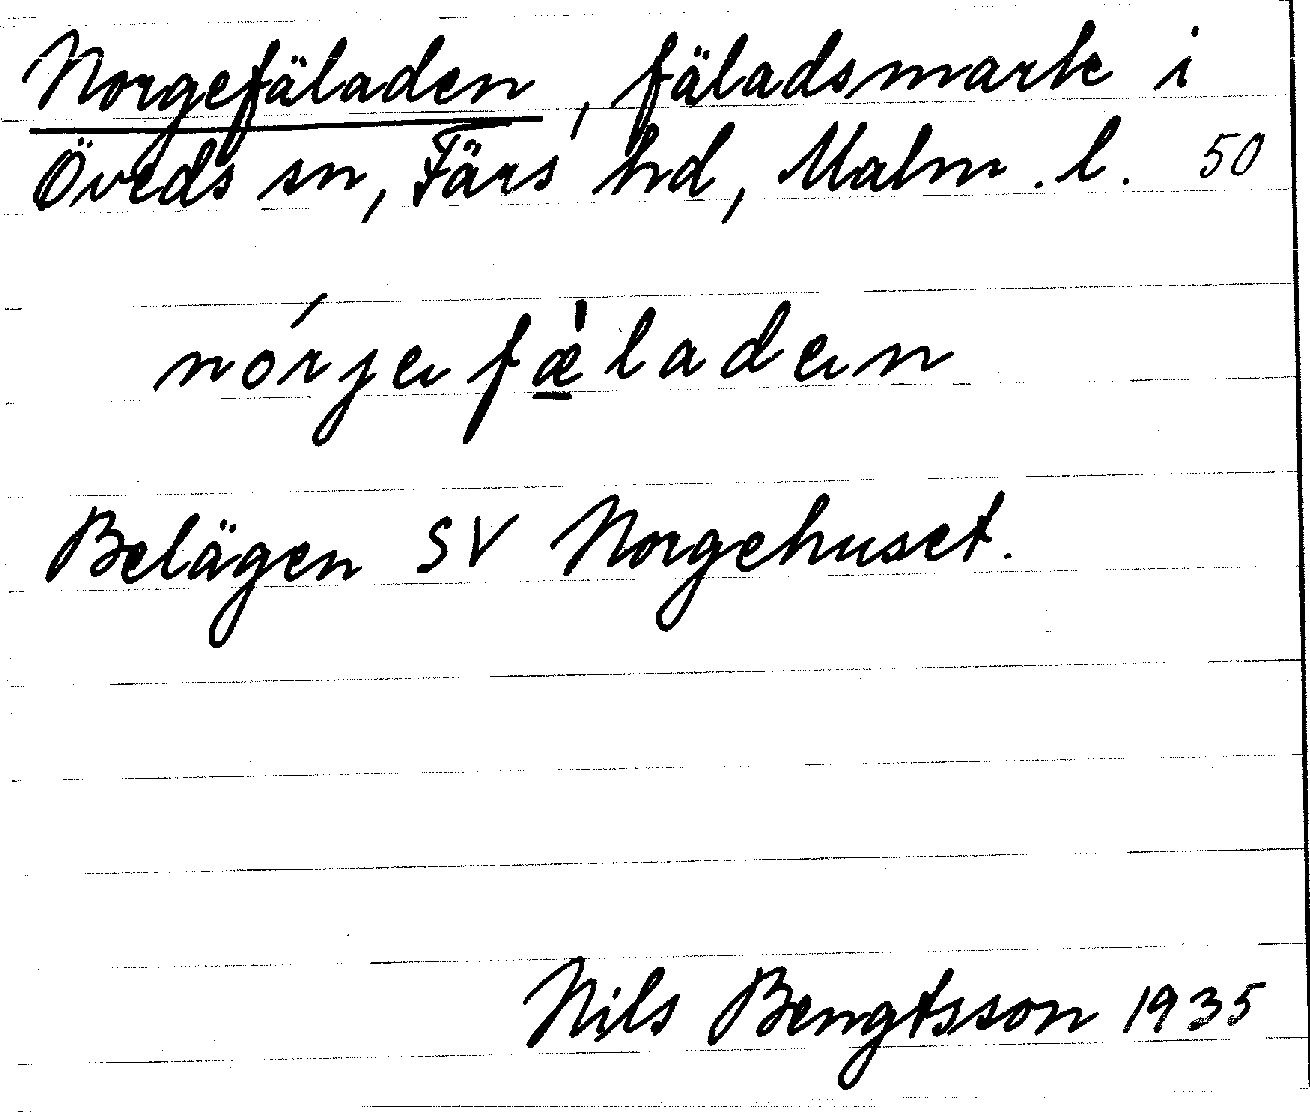 Norgefäladen, fäladsmark i
Öveds sn, Färs hd, Malm. l. 50
nórjefæ̲̀laden
Belägen SV Norgehuset.
Nils Bengtsson 1935